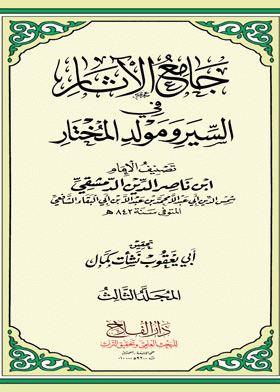 جامع الآثار
في
السير ومولد المختار
تصنيف الإمام
ابن ناصر الدين الدمشقي
شمس الدين أبي عبد الله محمد بن عبد الله بن أبي البقاء الشافعي
المتوفى سنة ٨٤٢ هـ
تحقيق
أبي يعقوب نشأت كمال
المجلد الثالث
دار الفلاح
للبحث العلمي وتحقيق التراث